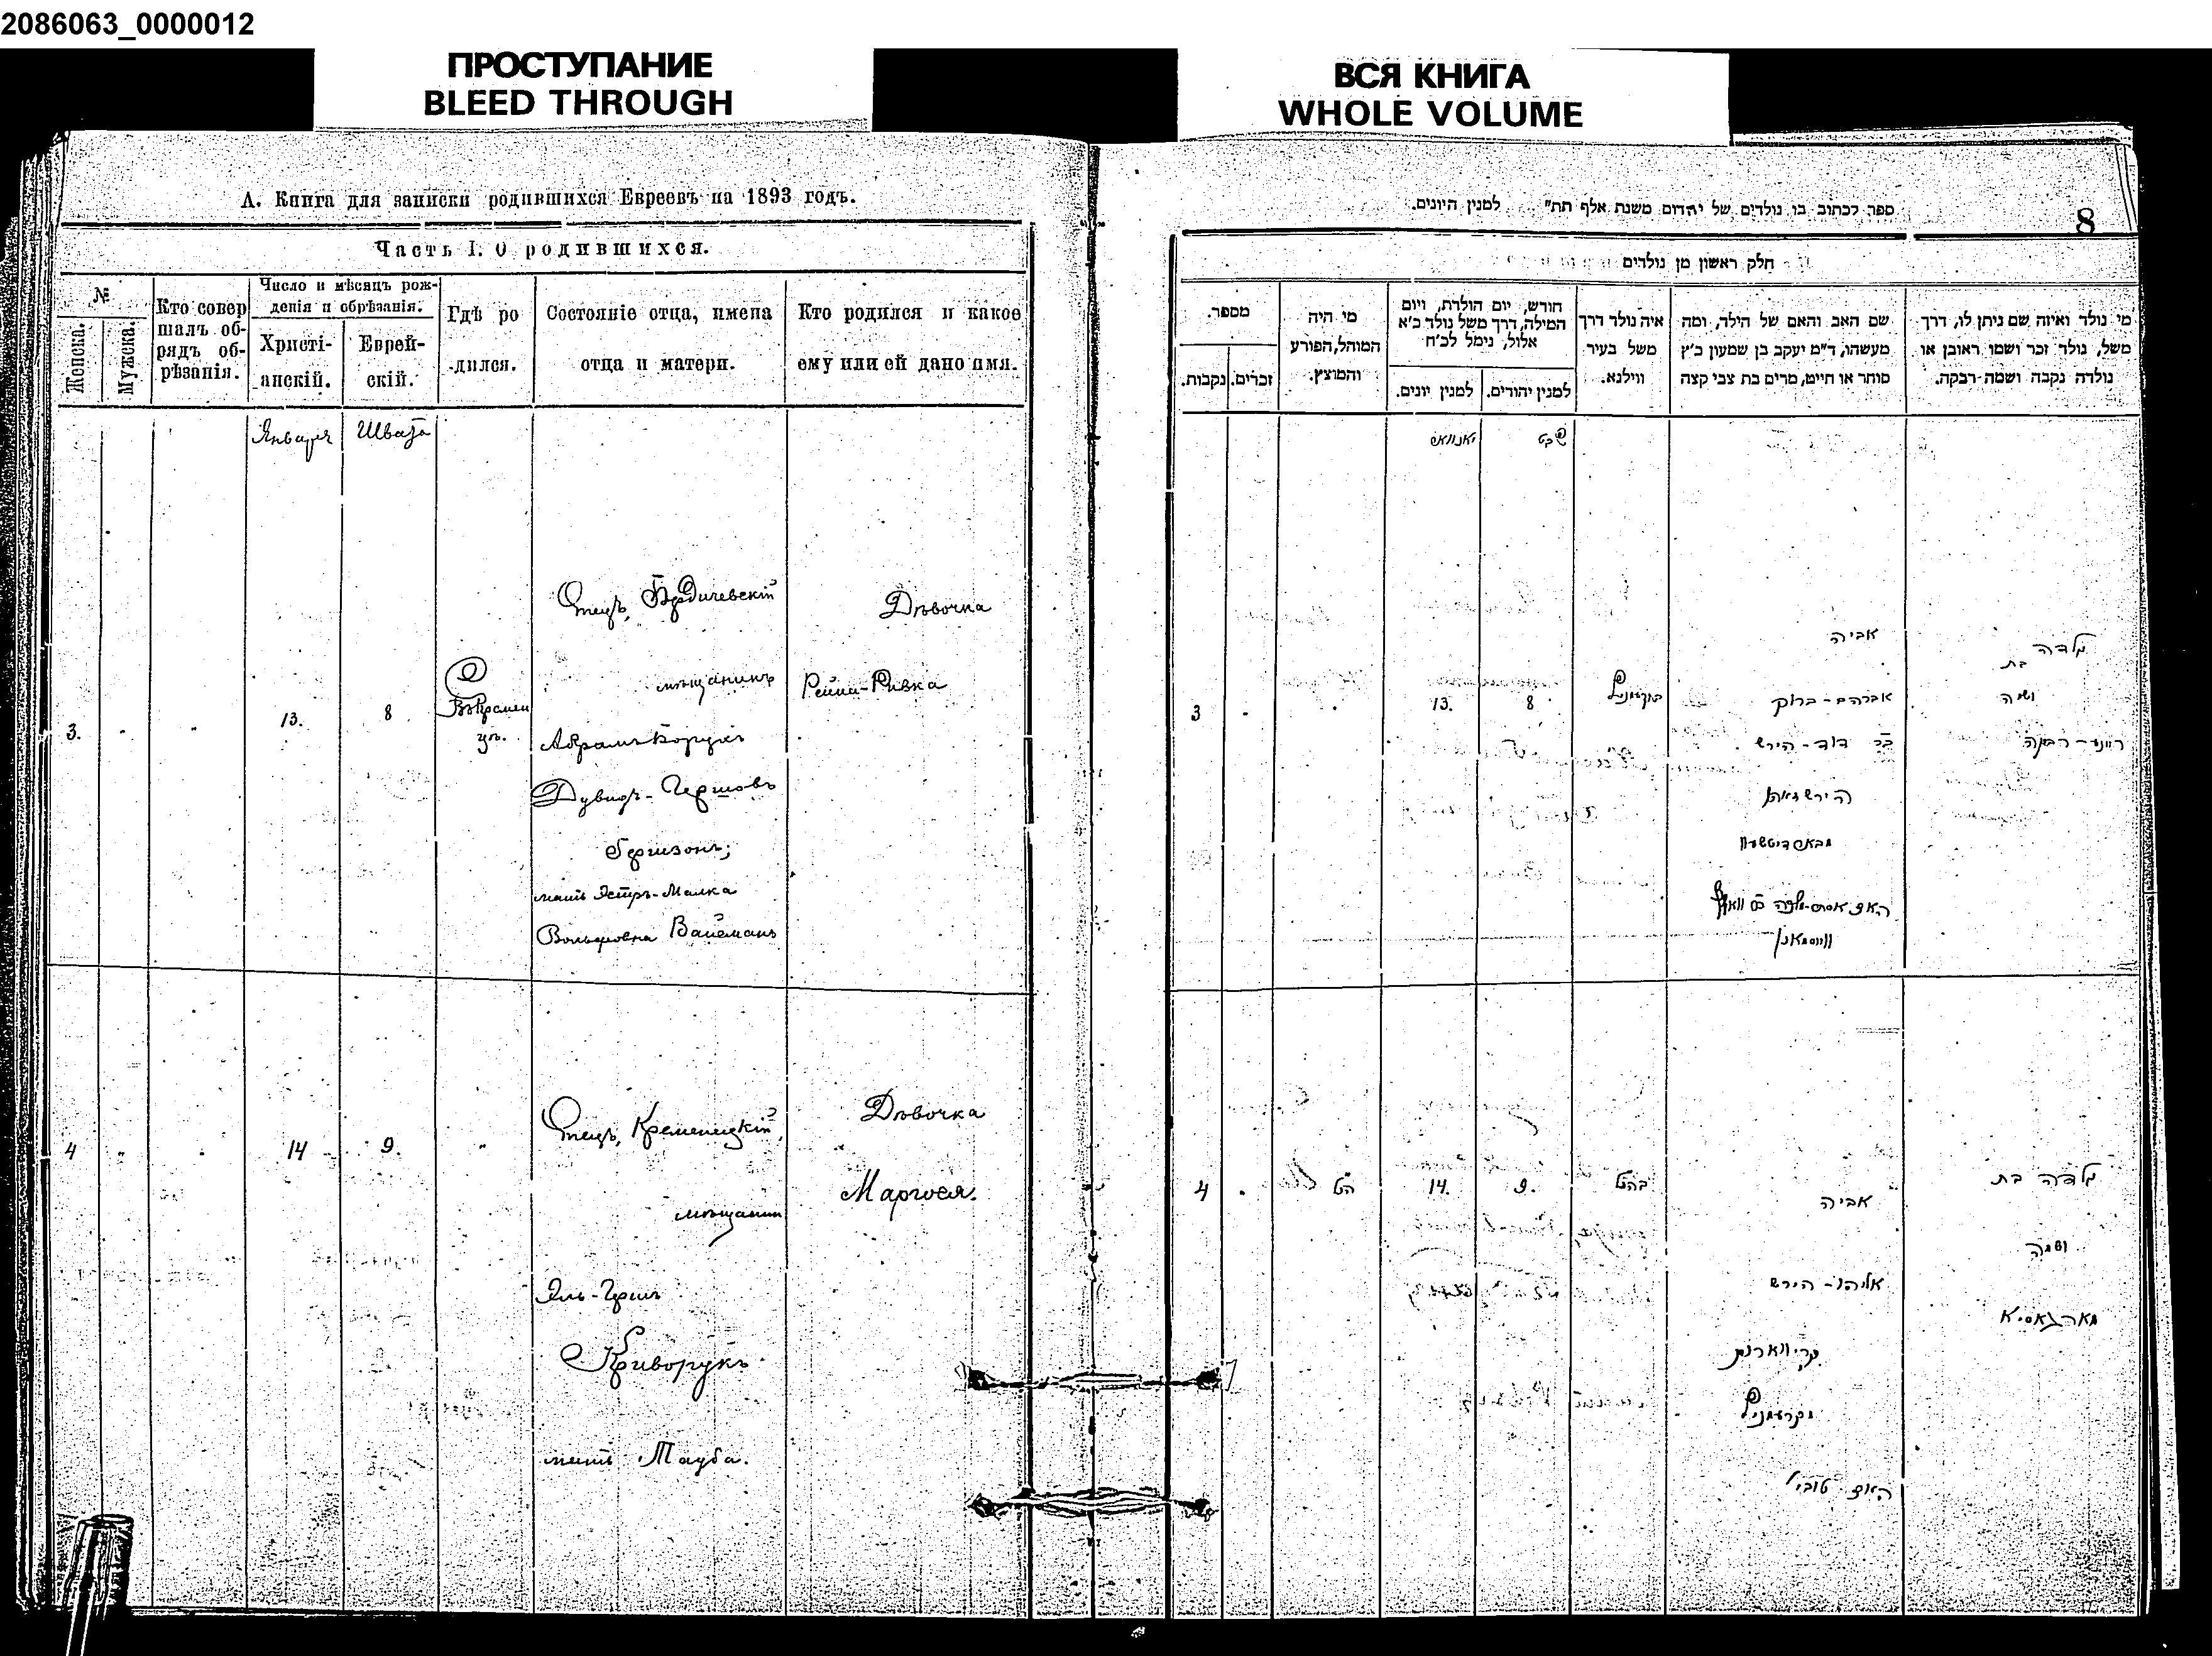 2086063_0000012
ПРОСТУПАНИЕ
BLEED THROUGH
ВСЯ КНИГА
WHOLE VOLUME
А. Книга для записки родившихся Евреевъ на 1893 годъ.
Часть I. О родившихся.
№
Женска.
Мужска.
Кто совер
шалъ об-
рядъ об-
рѣзанія.
Число и мѣсяцъ рож-
денія и обрѣзанія.
Христі-
анскій.
Еврей-
скій.
Гдѣ ро
дился.
Состояніе отца, имена
отца и матери.
Кто родился и какое
ему или ей дано имя.
Января
Швата
3.
13.
8
Въ Кремен
цѣ.
Отецъ, Бердичевскій
мѣщанинъ
Абрамъ Борухъ
Дувидъ-Гершовъ
Гершзонъ;
мать Эстръ-Малка
Вольфовна Вайсманъ
Дѣвочка
Рейзи-Ривка
4
14
9.
Отецъ, Кременецкій
мѣщанин
Эль-Герш
Криворукъ
мать Тауба.
Дѣвочка
Маргося.
ספר לכתוב בו נולדים של יהדום משנת אלף תת" למנין היונים.
8
חלק ראשון מן נולדים
מספר.
נקבות.
זכרים.
מי היה
המוהל, הפורע
והמוצץ.
חורש, יום הולדת, ויום
המילה, דרך משל נולד כ'א
אלול, נימל לכ'ח
למנין יונים.
למנין יהודים.
איה נולד דרך
משל בעיר
ווילנא.
שם האב והאם של הילד, ומה
מעשהו, ד"מ יעקב בן שמעון כ'ץ
סוחר או חייט, מרים בת צבי קצה
מי נולד ואיזה שם ניתן לו, דרך
משל, נולד זכר ושמו ראובן או
נולדה נקבה ושמה רבקה.
יאנואר
שבט
3
13.
8
בקרעמניץ
אביה
אברהם-ברוך
בר דוד-הירש
הירשזאהן
האם אסתר-מלכה בת וואלף
ווייסמאן
נולדה
בת
ושמה
4
14.
9.
אביה
אליהו-הירש
קריווארוק
מקרעמניץ
האם טובי'
נולדה בת
ושמה
מארגאסיא